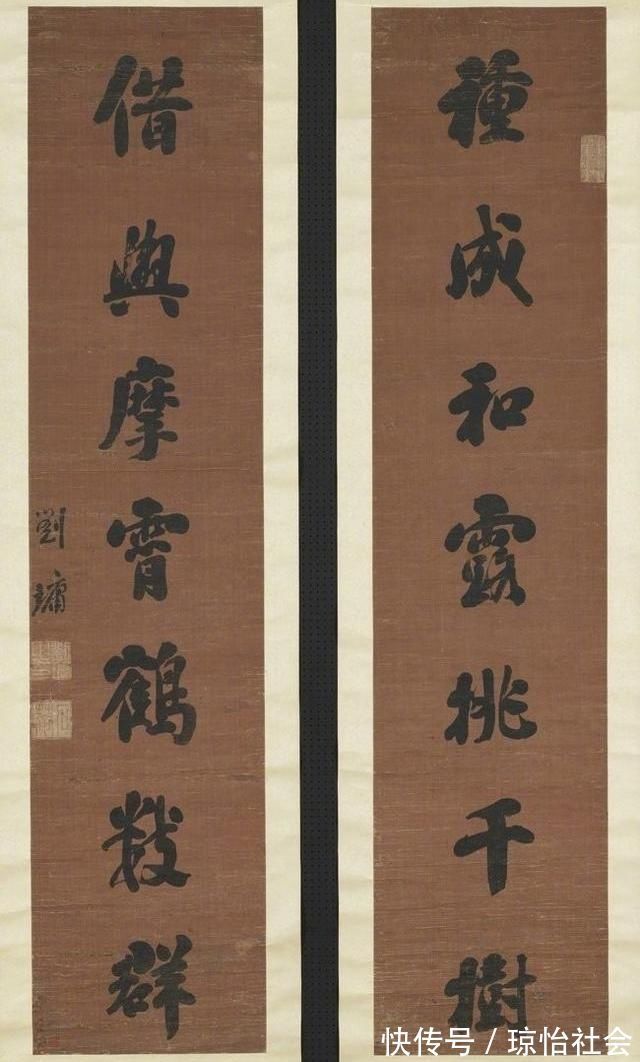 種成和露桃千樹
借與摩霄鶴數群
劉墉
快传号 / 琼怡社会